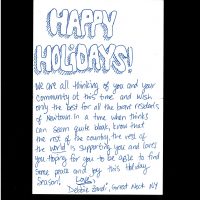 HAPPY
HOLIDAYS!
We are all thinking of you and your
community at this time and wish
only the best for all the brave residents
of Newtown. In a time when things
can seem quite bleak, know that
the rest of the country, the rest of
the world is supporting you and loves
you. Hoping for you to be able to find
some peace and joy this Holiday
Season!
Love,
Debbie Great Neck NY